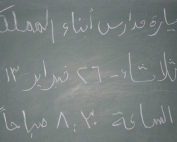 يارة مدارس أبناء المملكة
ثلاثاء - ٢٦ فبراير ١٣
الساعة ٨:٢٠ صباحاً